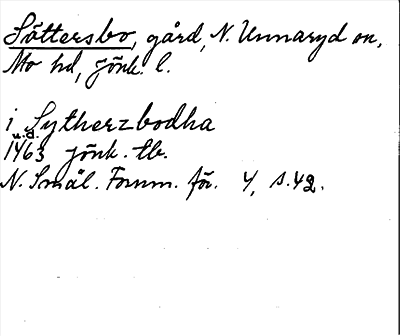 Söttersbo, gård, N. Unnaryd sn,
Mo hd, Jönk. l.
i Sytherzbodha
u.d.
1463 Jönk. tb.
N. Smål. Fornm. för. 4, s. 42.